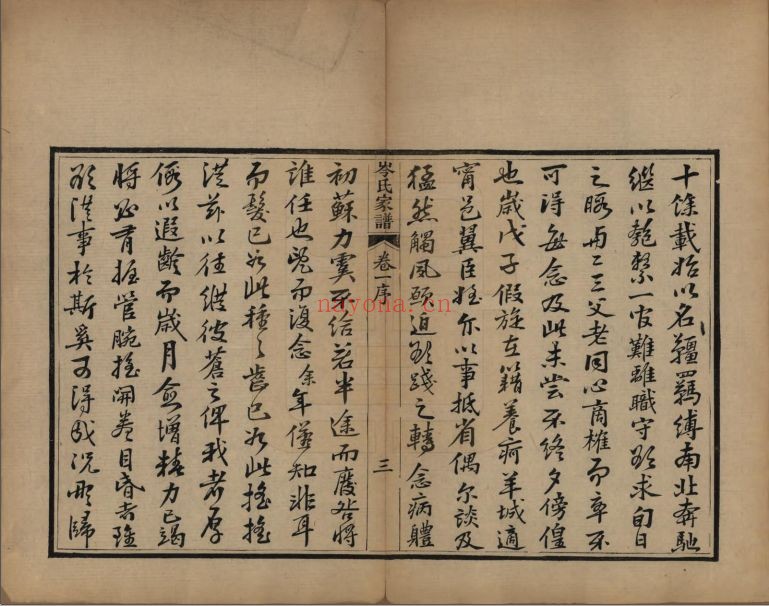 十餘載始以名韁羈縛南北奔馳
繼以匏繫一官難離職守欲求旬日
之暇與二三父老同心商榷而卒不
可得每念及此未嘗不終夕傍偟
也歲戊子假旋在籍養疴羊城適
甯邑翼臣姪亦以事抵省偶尔談及
猛然觸夙願迫欲踐之轉念病體
岑氏家譜
卷一序
三
初蘇力實不給若半途而廢咎將
誰任也既而復念余年僅知非耳
而髮已如此種之齒已如此搖搖
從茲以往縱彼蒼之俾我者厚
假以遐齡而歲月愈增精力已竭
將必有握管腕搖開卷目昏者雖
欲從事於斯奚可得哉況明歸
nayona.cn